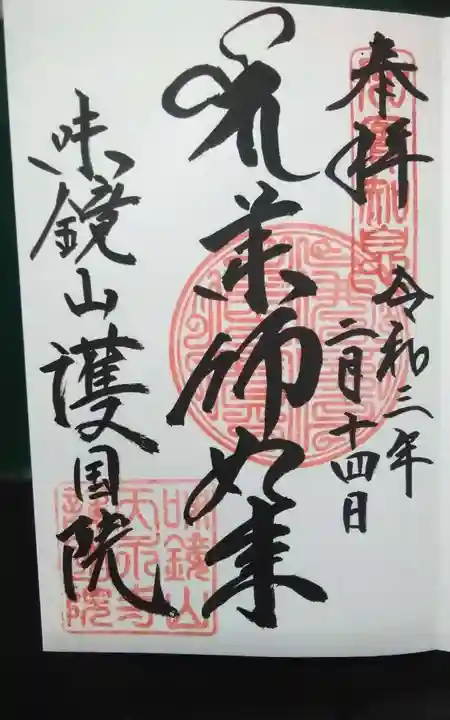 奉拝
令和三年
二月十四日
薬師如来
味鏡山護国院
味鏡山
天永寺
護国院